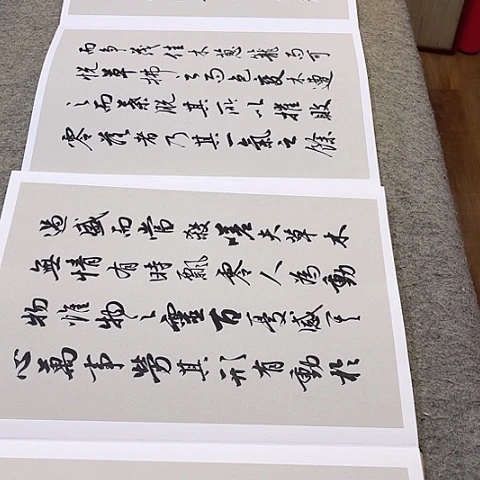 而爭茂佳木葱蘢而可
悅草拂之而色變木遭
之而葉脫其所以摧敗
零落者乃其一氣之餘
過盛而當殺嗟夫草木
無情有時飄零人為動
物惟物之靈百憂感其
心萬事勞其形有動於